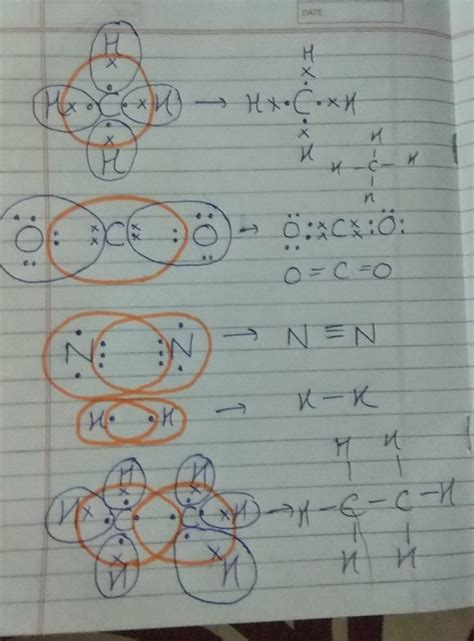 DATE:
H
H x • C • x H → H x • C • x H
H
H
H
H
H - C - H
H
O : x x C x x : O → O : x x C x x : O
O = C = O
N N → N ≡ N
H • • H → H - H
H H H H
H x C • • C x H → H - C - C - H
H H H H